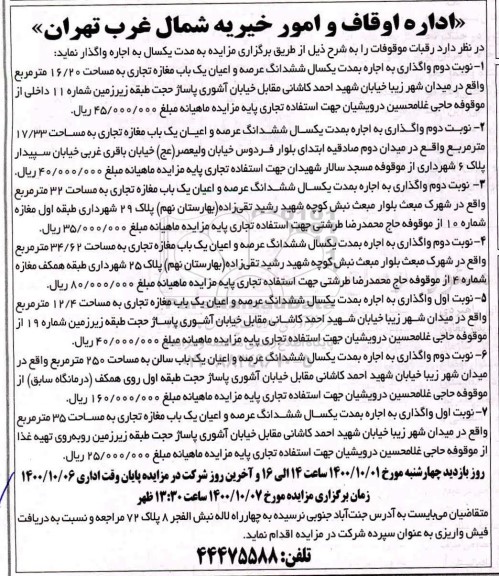 «اداره اوقاف و امور خیریه شمال غرب تهران»
در نظر دارد رقبات موقوفات را به شرح ذیل از طریق برگزاری مزایده به مدت یکسال به اجاره واگذار نماید:
۱- نوبت دوم واگذاری به اجاره بمدت یکسال ششدانگ عرصه و اعیان یک باب مغازه تجاری به مساحت ۱۶/۲۰ مترمربع
واقع در میدان شهر زیبا خیابان شهید احمد کاشانی مقابل خیابان آشوری پاساژ حجت طبقه زیرزمین شماره ۱۱ داخلی از
موقوفه حاجی غلامحسین درویشیان جهت استفاده تجاری پایه مزایده ماهیانه مبلغ ۴۵/۰۰۰/۰۰۰ ریال.
۲- نوبت دوم واگذاری به اجاره بمدت یکسال ششدانگ عرصه و اعیان یک باب مغازه تجاری به مساحت ۱۷/۳۳
مترمربع واقع در میدان دوم صادقیه ابتدای بلوار فردوس خیابان ولیعصر(عج) خیابان باقری غربی خیابان سپیدار
پلاک ۶ شهرداری از موقوفه مسجد سالار شهیدان جهت استفاده تجاری پایه مزایده ماهیانه مبلغ ۴۰/۰۰۰/۰۰۰ ریال.
۳- نوبت دوم واگذاری به اجاره بمدت یکسال ششدانگ عرصه و اعیان یک باب مغازه تجاری به مساحت ۳۲ مترمربع
واقع در شهرک مبعث بلوار مبعث نبش کوچه شهید رشید تقی‌زاده(بهارستان نهم) پلاک ۲۹ شهرداری طبقه اول مغازه
شماره ۱۰ از موقوفه حاج محمدرضا طرشتی جهت استفاده تجاری پایه مزایده ماهیانه مبلغ ۳۵/۰۰۰/۰۰۰ ریال.
۴- نوبت دوم واگذاری به اجاره بمدت یکسال ششدانگ عرصه و اعیان یک باب مغازه تجاری به مساحت ۳۴/۶۲ مترمربع
واقع در شهرک مبعث بلوار مبعث نبش کوچه شهید رشید تقی‌زاده(بهارستان نهم) پلاک ۲۵ شهرداری طبقه همکف مغازه
شماره ۴ از موقوفه حاج محمدرضا طرشتی جهت استفاده تجاری پایه مزایده ماهیانه مبلغ ۸۰/۰۰۰/۰۰۰ ریال.
۵- نوبت اول واگذاری به اجاره بمدت یکسال ششدانگ عرصه و اعیان یک باب مغازه تجاری به مساحت ۱۲/۴ مترمربع
واقع در میدان شهر زیبا خیابان شهید احمد کاشانی مقابل خیابان آشوری پاساژ حجت طبقه زیرزمین شماره ۱۹ از
موقوفه حاجی غلامحسین درویشیان جهت استفاده تجاری پایه مزایده ماهیانه مبلغ ۴۰/۰۰۰/۰۰۰ ریال.
۶- نوبت اول واگذاری به اجاره بمدت یکسال ششدانگ عرصه و اعیان یک باب سالن به مساحت ۲۵۰ مترمربع واقع در
میدان شهر زیبا خیابان شهید احمد کاشانی مقابل خیابان آشوری پاساژ حجت طبقه اول روی همکف (درمانگاه سابق) از
موقوفه حاجی غلامحسین درویشیان جهت استفاده تجاری پایه مزایده ماهیانه مبلغ ۱۶۰/۰۰۰/۰۰۰ ریال.
۷- نوبت اول واگذاری به اجاره بمدت یکسال ششدانگ عرصه و اعیان یک باب مغازه تجاری به مساحت ۳۵ مترمربع
واقع در میدان شهر زیبا خیابان شهید احمد کاشانی مقابل خیابان آشوری پاساژ حجت طبقه زیرزمین روبه‌روی تهیه غذا
از موقوفه حاجی غلامحسین درویشیان جهت استفاده تجاری پایه مزایده ماهیانه مبلغ ۲۵/۰۰۰/۰۰۰ ریال.
روز بازدید چهارشنبه مورخ ۱۴۰۰/۱۰/۰۱ ساعت ۱۴ الی ۱۶ و آخرین روز شرکت در مزایده پایان وقت اداری ۱۴۰۰/۱۰/۰۶
زمان برگزاری مزایده مورخ ۱۴۰۰/۱۰/۰۷ ساعت ۱۳:۳۰ ظهر
متقاضیان می‌بایست به آدرس جنت‌آباد جنوبی نرسیده به چهارراه لاله نبش الفجر ۸ پلاک ۷۲ مراجعه و نسبت به دریافت
فیش واریزی به عنوان سپرده شرکت در مزایده اقدام نماید.
تلفن: ۴۴۴۷۵۵۸۸